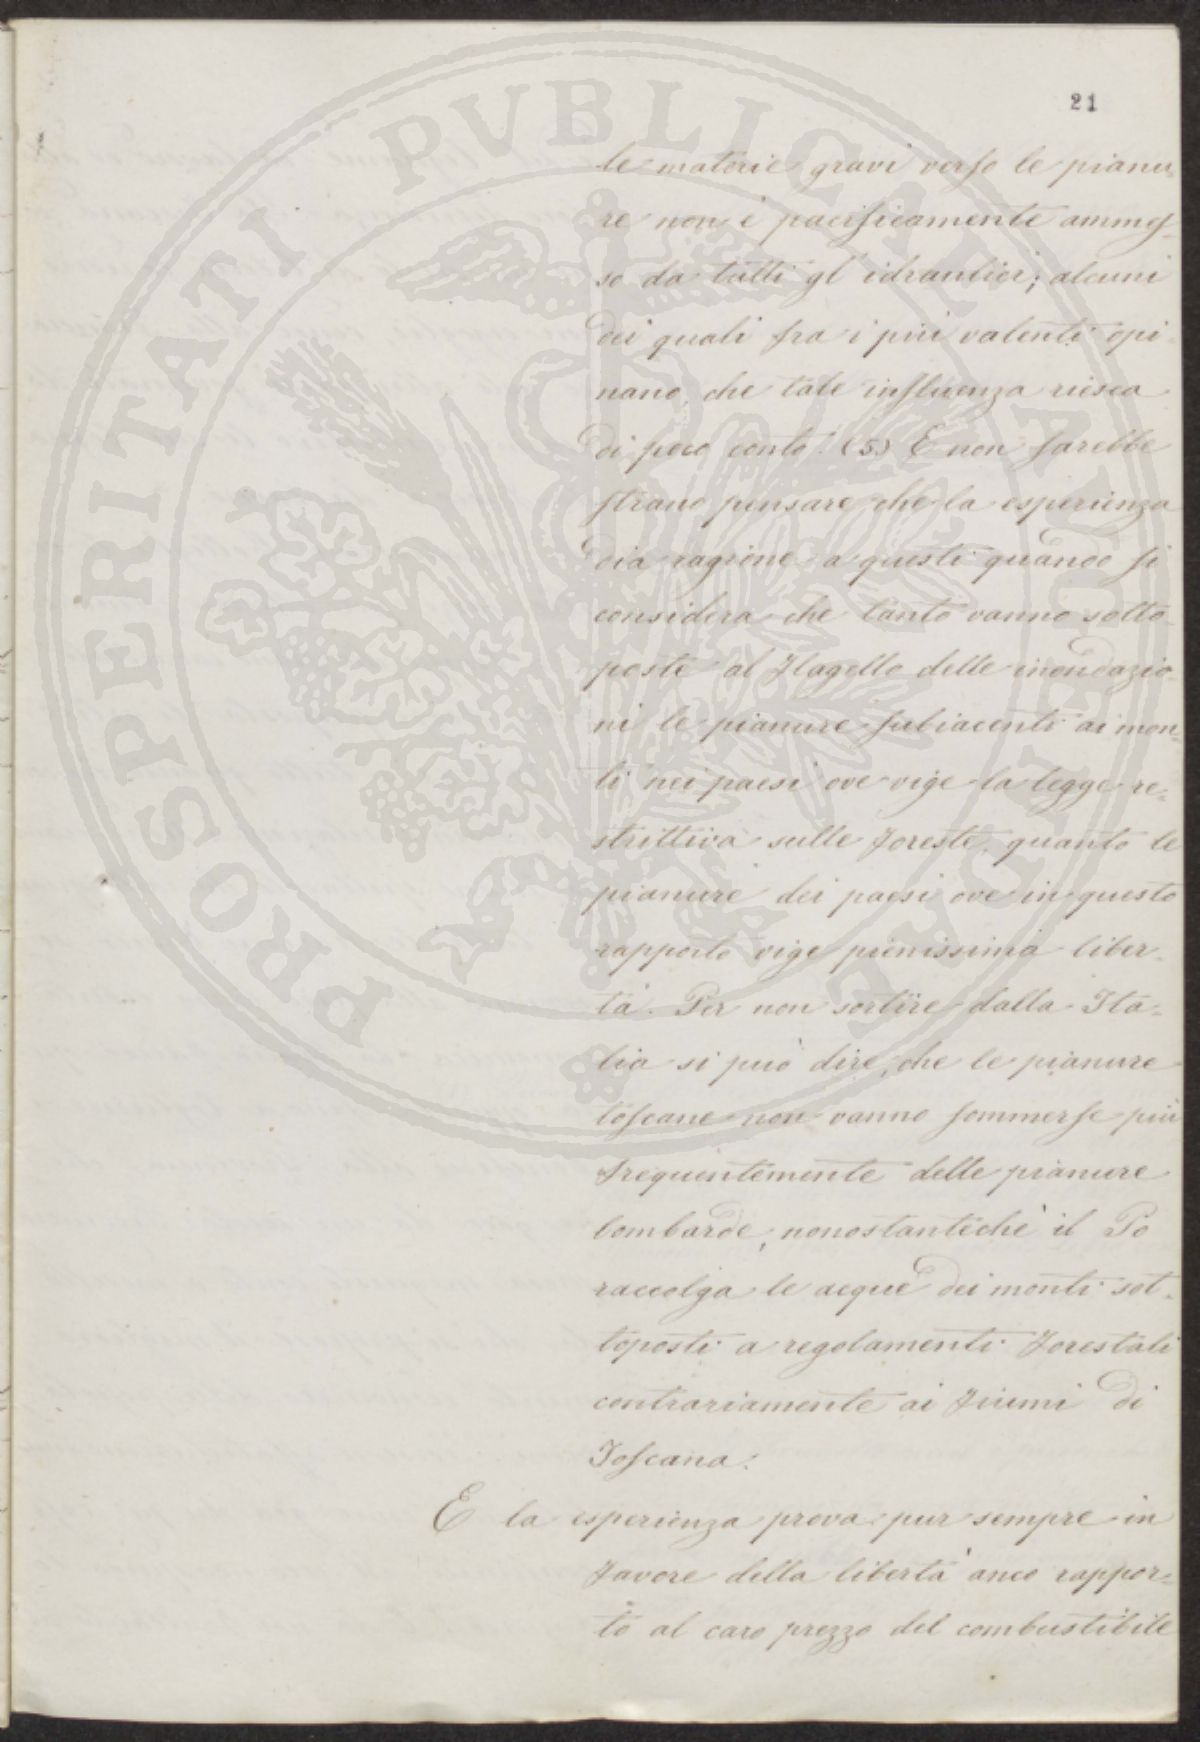 21
le materie gravi verso le pianu-
re non è pacificamente ammes-
so da tutti gl' idraulici; alcuni
dei quali fra i più valenti opi-
nano, che tale influenza riesca
di poco conto. (5) E non sarebbe
strano pensare che la esperienza
dia ragione a questi quando si
considera che tanto vanno sotto-
poste al flagello delle inondazio-
ni le pianure subiacenti ai mon-
ti nei paesi ove vige la legge re-
strittiva sulle foreste, quanto le
pianure dei paesi ove in questo
rapporto vige pienissima liber-
tà. Per non sortire dalla Ita-
lia si può dire, che le pianure
toscane non vanno sommerse più
frequentemente delle pianure
lombarde, nonostantechè il Po
raccolga le acque dei monti sot-
toposti a regolamenti forestali
contrariamente ai fiumi di
Toscana.
E la esperienza prova pur sempre in
favore della libertà anco rappor-
to al caro prezzo del combustibile
PROSPERITATI PVBLICAE AVGENDAE